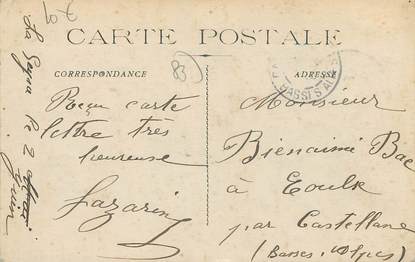 CARTE POSTALE
CORRESPONDANCE
ADRESSE
83
La Seyne le 2
Juin
Reçu carte
lettre très
heureuse
Lazarine
Monsieur
Bienaimé Bac
à Eoulx
par Castellane
(Basses-Alpes)
BASSES ALPES